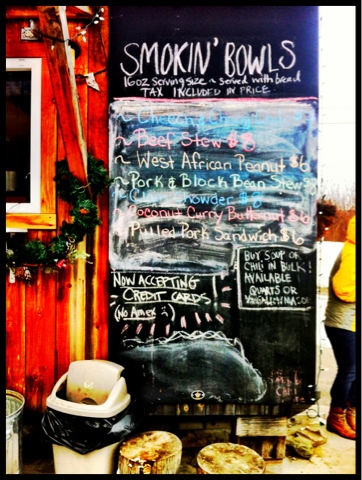 SMOKIN' BOWLS
16oz serving size ~ served with bread
TAX INCLUDED IN PRICE
~ Beef Stew $8
~ West African Peanut $6
~ Pork & Block Bean Stew $
~ Chowder $8
Coconut Curry Butternut $6
Pulled Pork Sandwich $6
BUY SOUP OR
CHILI IN BULK!
AVAILABLE
QUARTS OR
NOW ACCEPTING
CREDIT CARDS
(No Amex :)